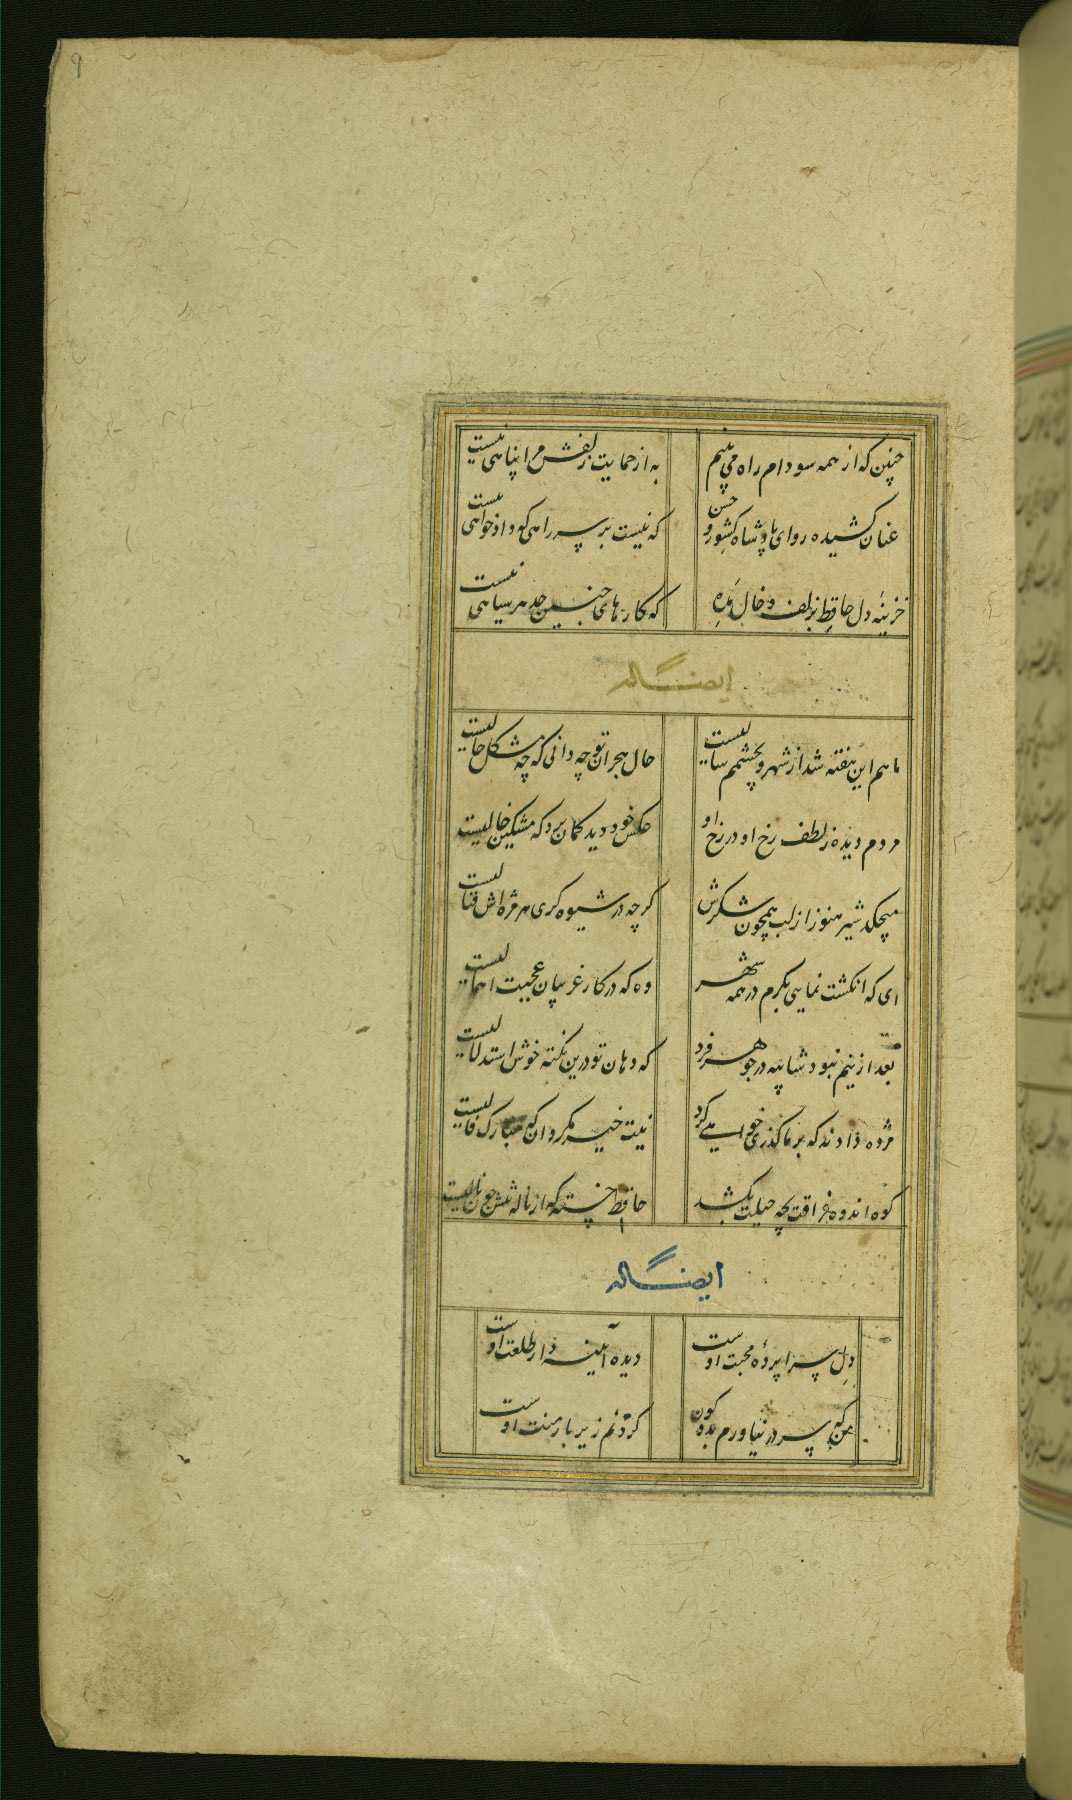 ۹
چنین که از همه سو دام راه می بینم
به از حمایت زلفش مرا پناهی نیست
عنان کشیده رو ای پادشاه کشور حسن
که نیست بر سر راهی که داد خواهی نیست
خزینه دل حافظ بزلف و خال مده
که کارهای چنین حد هر سیاهی نیست
ایضا له
ماهم این هفته شد از شهر و بچشمم سالیست
حال هجران تو چه دانی که چه مشکل حالیست
مردم دیده ز لطف رخ او در رخ او
عکس خود دید کمان برد که مشکین خالیست
میچکد شیر هنوز از لب همچون شکرش
کرچه در شیوه کری هر مژه اش قتالیست
ای که انکشت نمایی بکرم در همه شهر
وه که در کار غریبان عجبت اهمالیست
بعد ازینم نبود شایبه در جوهر فرد
که دهان تو درین نکته خوش استدلالیست
مژده دادند که بر ما کذری خواهی کرد
نیت خیر مکردان که مبارک فالیست
کوه اندوه فراقت بچه حیلت بکشد
حافظ خسته که از ناله تنش چون نالیست
ایضا له
دل سراپردهٔ محبت اوست
دیده آیینه دار طلعت اوست
من که سر در نیاورم بدو کون
کردنم زیر بار منت اوست